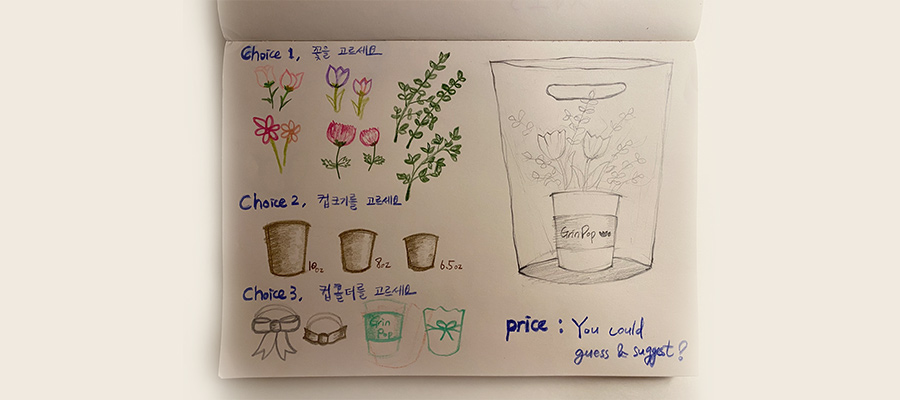 Choice 1, 꽃을 고르세요
Choice 2, 컵크기를 고르세요
10oz 8oz 6.5oz
Choice 3, 컵홀더를 고르세요
Grin
Pop
GrinPop
price : You could
guess & suggest?